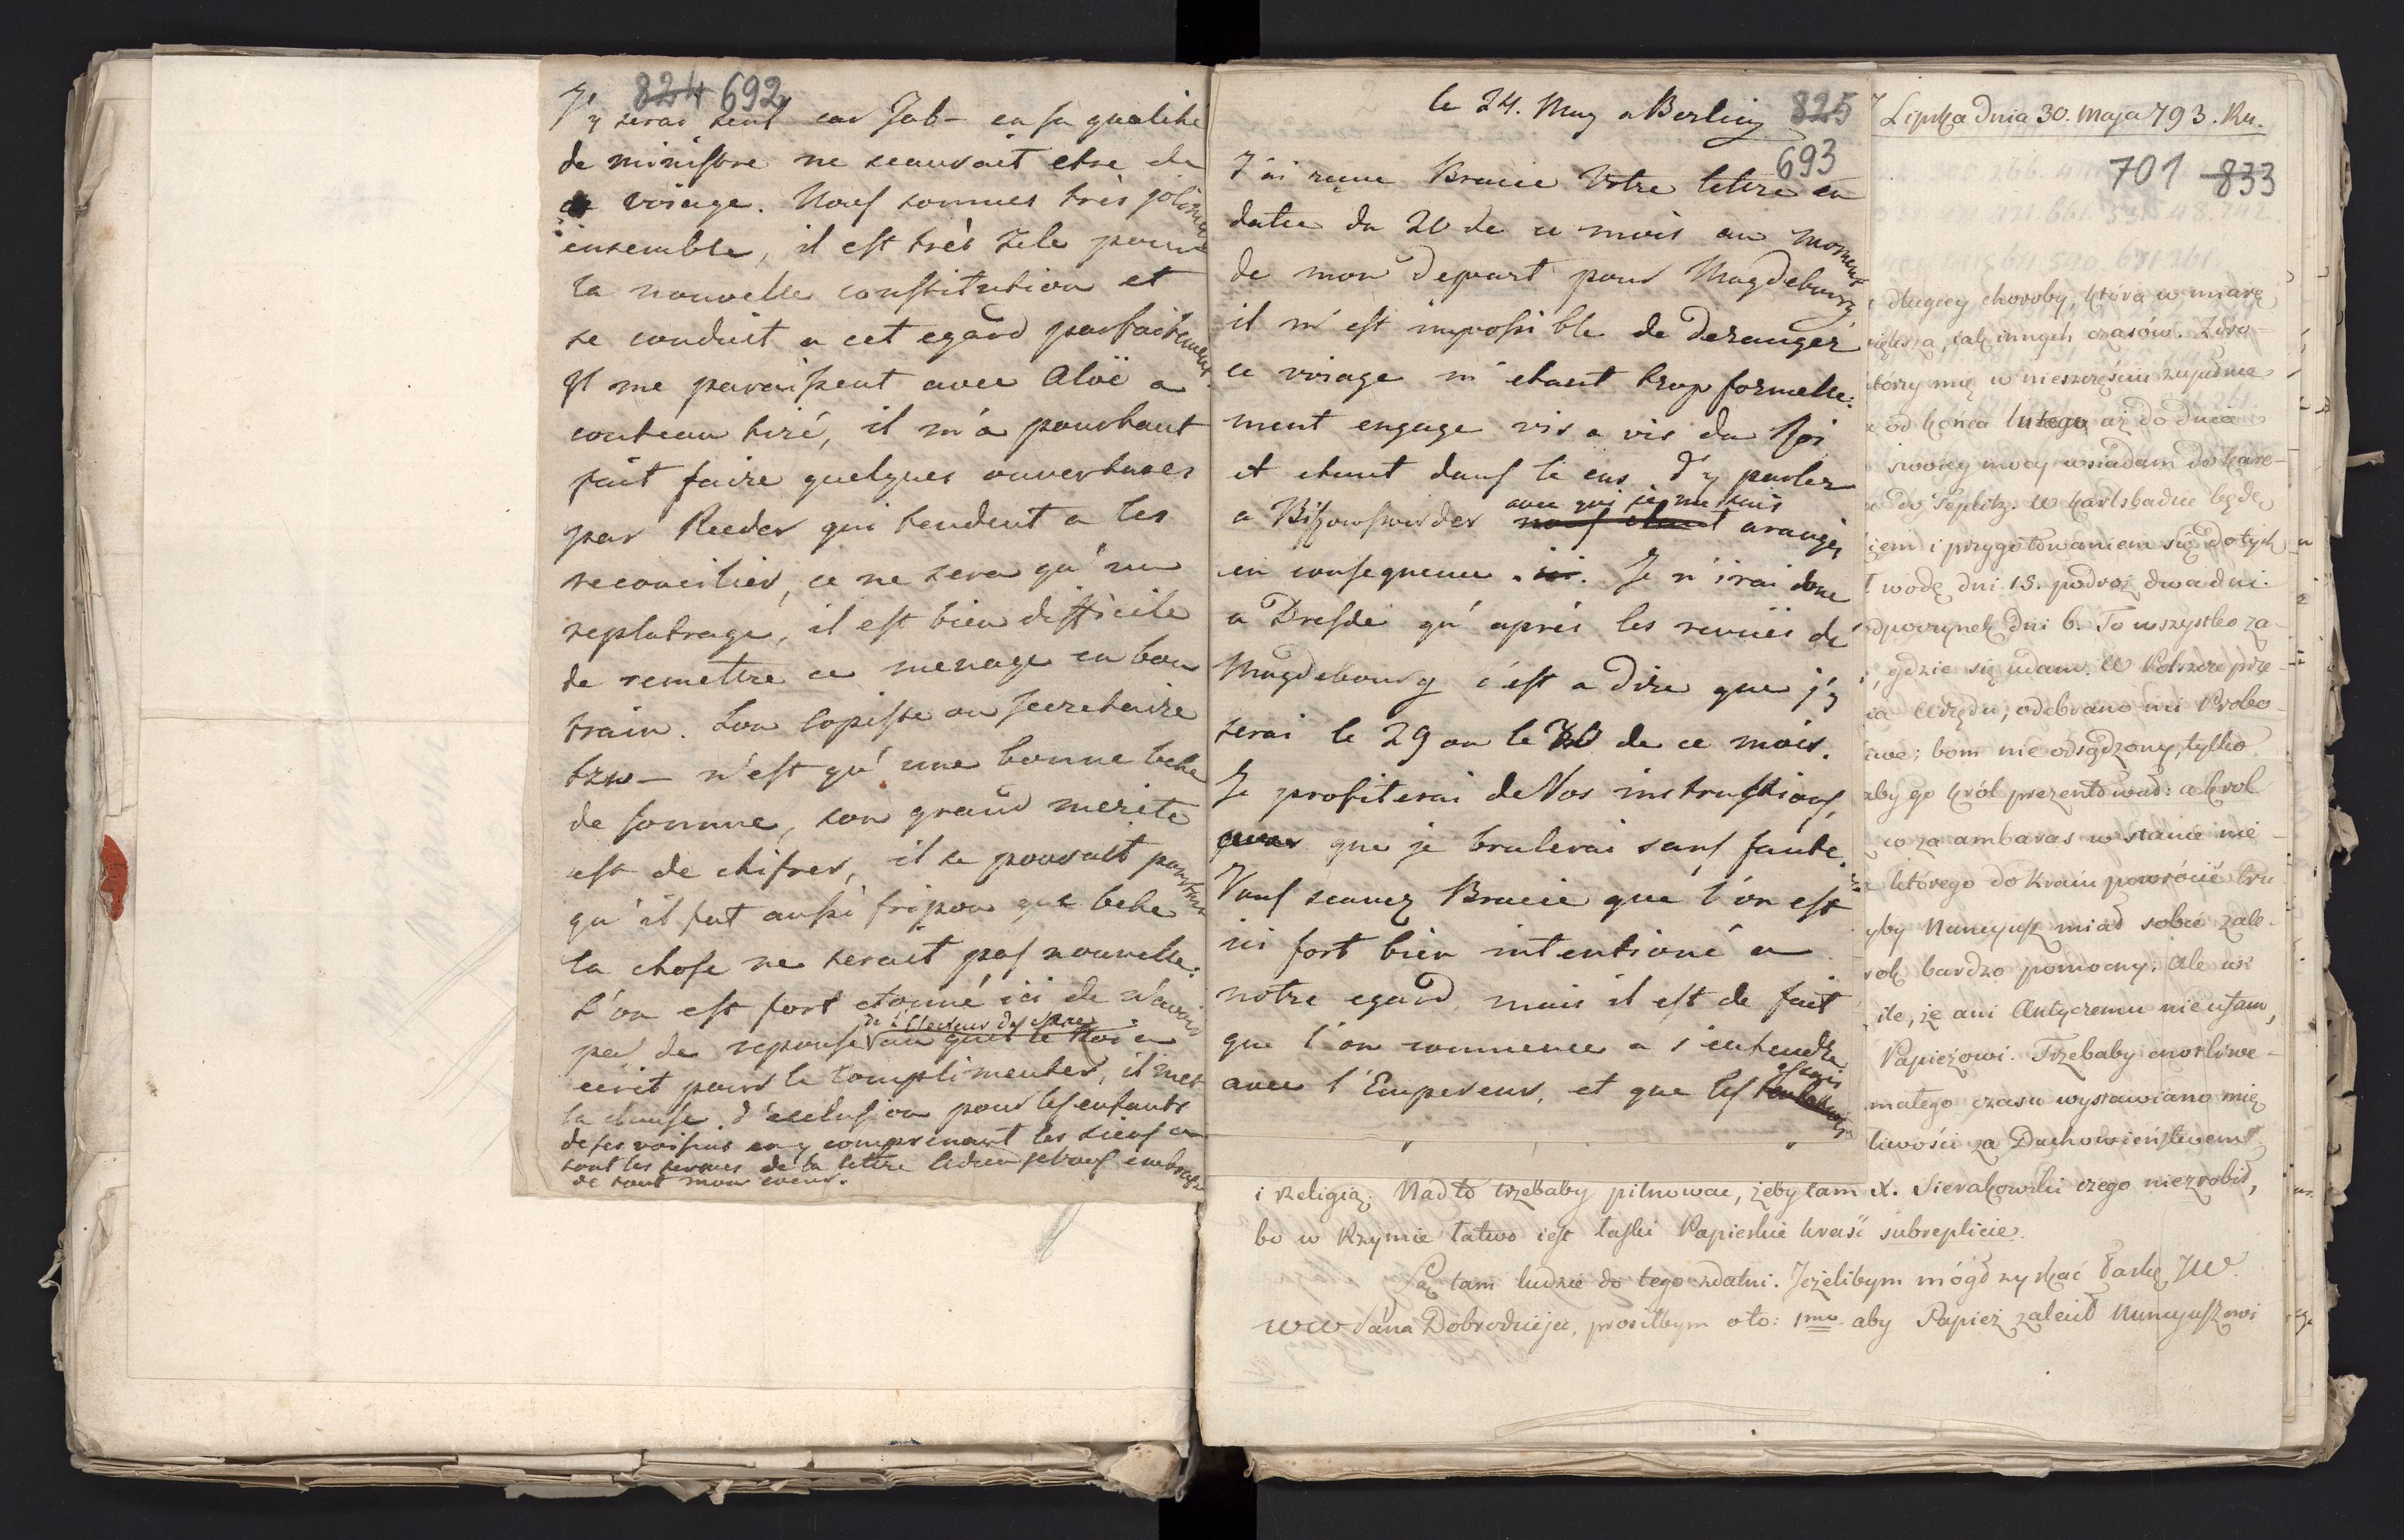 824 692
J'y serai seul car Jab- en sa qualité
de ministre ne scauroit etre de
ce voiage. Nous sommes très joliment
ensemble, il est très zele pour
la nouvelle constitution et
se conduit a cet egard parfaitement.
Il me paraissent avec Aloë a
couteau tiré, il m'a pourtant
fait faire quelques ouvertures
par Reeder qui tendent a les
reconcilier, ce ne sera qu'un
replatrage, il est bien difficile
de remettre ce menage en bon
train. Son Copiste ou Secretaire
tzw- n'est qu'une bonne bete
de somme, son grand merite
est de chifrer, il se pouroit pourtant
qu'il fut aussi fripon que bete
la chose ne serait pas nouvelle:
L'on est fort etonné ici de n'avoir
de l'Electeur de Saxe
pas de reponse au que le Roi a
ecrit pour le Complimenter, il met
la clause d'exclusion pour les enfants
de ses voisins en y comprenant les siens ce
sont les termes de la lettre Adieu je vous embrasse
de tout mon coeur.

le 24. May a Berlin 825
693
J'ai reçue Bracie Votre lettre en
datte du 20 de ce mois au moment
de mon depart pour Magdebourg
il m'est impossible de deranger
ce voiage m'etant trop formelle:
ment engagé vis a vis du Roi
et etant dans le cas d'y parler
avec qui je me suis
a Bischofswerder nous etant arangé
en consequence. Je n'irai donc
a Dresde qu'aprés les revües de
Magdebourg c'est a dire que j'y
serai le 29 ou le 30 de ce mois.
Je profiterai de Vos instructions,
que je brulerai sans faute.
Vous scavez Bracie que l'on est
ici fort bien intentioné a
notre egard, mais il est de fait
que l'on commence a s'entendre
avec l'Empereur, et que les

Lipska dnia 30. Maja 793. Ru.
701 833
długiey choroby, która w miarę
iększa, iak innych czasów. Zdro-
tóry mię w nieszczęściu zupełnie
od końca lutego aż do dnia
swoiey mocy wsiadam do kare-
do Teplitz. W Karlsbadzie będę
iem i przygotowaniem się do tych
wodę dni 15. podroż dwa dni.
dpoczynek dni 6. To wszystko za-
, gdzie się udam. W Polszcze prze-
Urzędu, odebrano mi Probo-
twe; bom nie odsądzony, tylko
aby go król prezentował: a krol
co za ambaras w stanie nie-
którego do kraiu powrócić tru
yby Nuncyusz miał sobie zale-
rok bardzo pomocny. Ale w
ile, że ani Antyczemu nie ufam,
Papieżowi. Trzebaby cnotliwe-
małego czasu wystawiano mię
liwości za Duchowieństwem
i Religią. Nadto trzebaby pilnować, żeby tam X. Sierakowski czego nie zrobił,
bo w Rzymie łatwo iest łaski Papieskie kraść subreplicie.
Są tam ludzie do tego zdatni. Jeżelibym mógł zyskać łaskę JW.
WW Pana Dobrodzieja, prosiłbym o to: 1mo aby Papież zalecił Nuncyuszowi